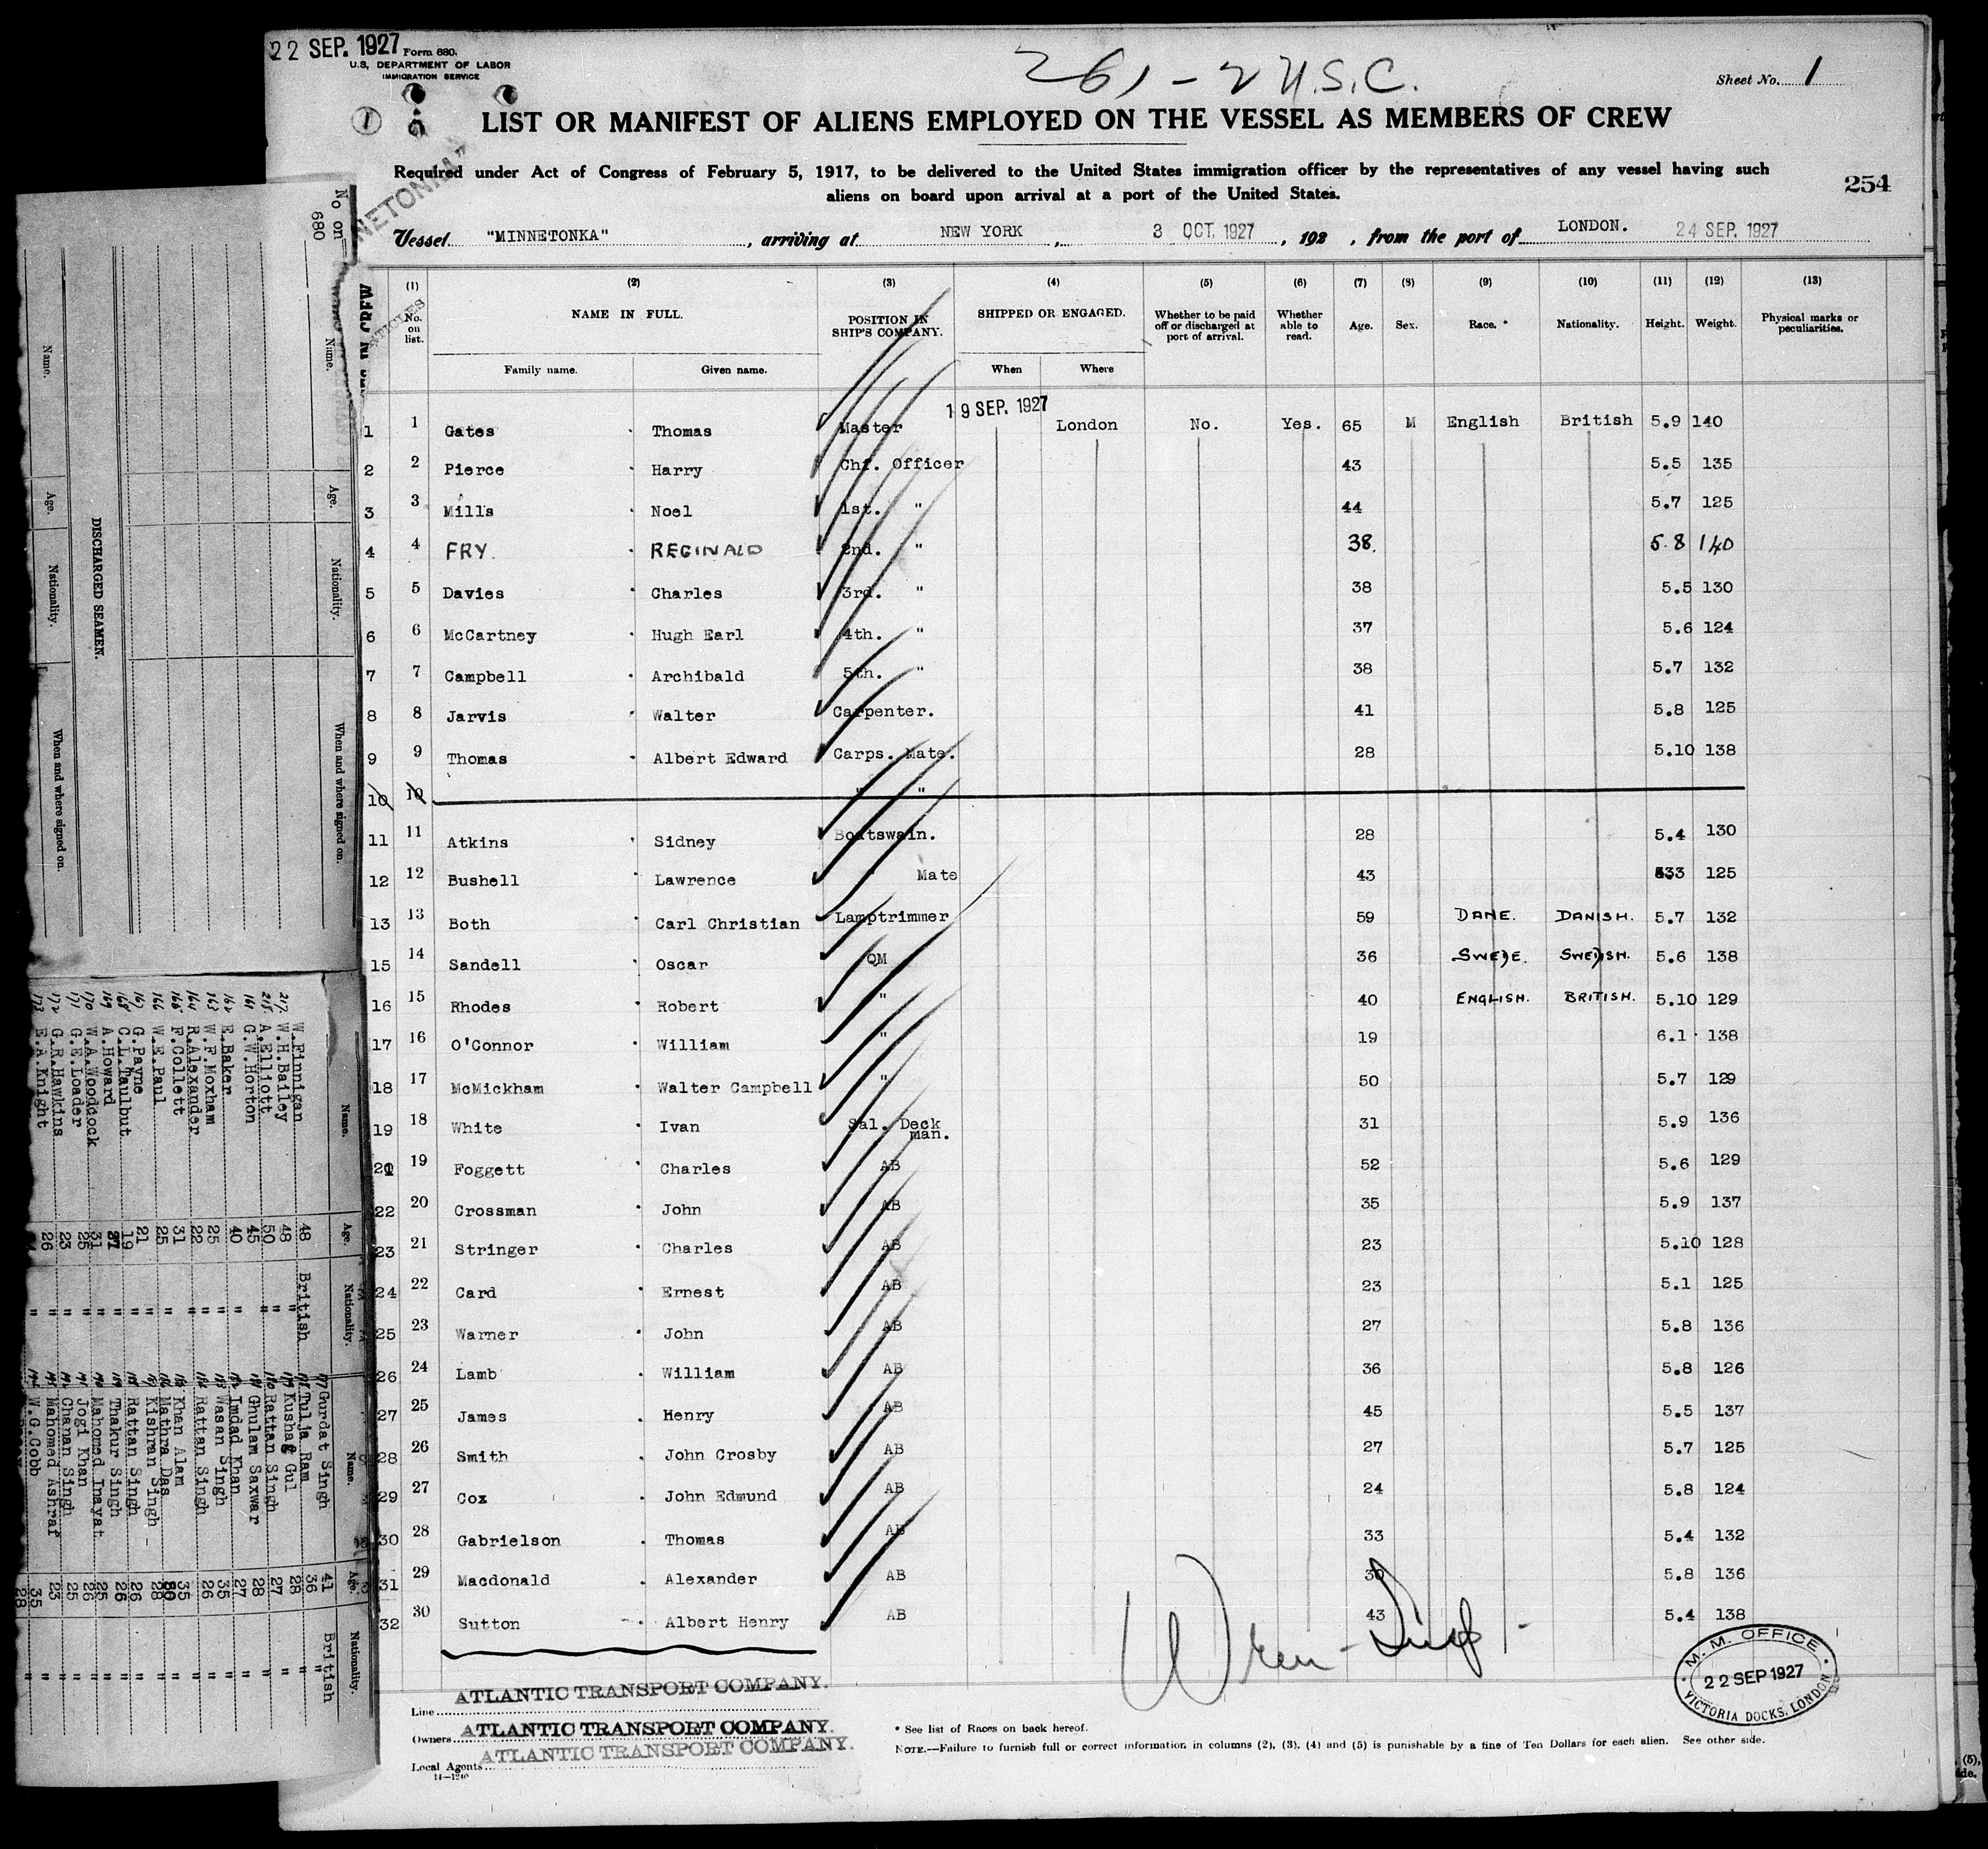 22 SEP. 1927 Form 680.
U.S. DEPARTMENT OF LABOR
IMMIGRATION SERVICE
261 - 2 U.S.C.
Sheet No. 1
1
LIST OR MANIFEST OF ALIENS EMPLOYED ON THE VESSEL AS MEMBERS OF CREW
Required under Act of Congress of February 5, 1917, to be delivered to the United States immigration officer by the representatives of any vessel having such
aliens on board upon arrival at a port of the United States.
254
Vessel "MINNETONKA", arriving at NEW YORK, 3 OCT. 1927, 192 , from the port of LONDON. 24 SEP. 1927
(1) (2) (3) (4) (5) (6) (7) (8) (9) (10) (11) (12) (13)
No. on list. NAME IN FULL. POSITION IN SHIP'S COMPANY. SHIPPED OR ENGAGED. Whether to be paid off or discharged at port of arrival. Whether able to read. Age. Sex. Race. * Nationality. Height. Weight. Physical marks or peculiarities.
Family name. Given name. When Where
19 SEP. 1927
1 1 Gates Thomas Master London No. Yes. 65 M English British 5.9 140
2 2 Pierce Harry Chf. Officer 43 5.5 135
3 3 Mills Noel 1st. " 44 5.7 125
4 4 FRY. REGINALD 2nd. " 38. 5.8 140
5 5 Davies Charles 3rd. " 38 5.5 130
6 6 McCartney Hugh Earl 4th. " 37 5.6 124
7 7 Campbell Archibald 5th. " 38 5.7 132
8 8 Jarvis Walter Carpenter. 41 5.8 125
9 9 Thomas Albert Edward Carps. Mate. 28 5.10 138
10 10 " "
11 11 Atkins Sidney Boatswain. 28 5.4 130
12 12 Bushell Lawrence Mate 43 125
13 13 Both Carl Christian Lamptrimmer 59 DANE. DANISH. 5.7 132
15 14 Sandell Oscar QM 36 SWEDE. SWEDISH. 5.6 138
16 15 Rhodes Robert " 40 ENGLISH. BRITISH. 5.10 129
17 16 O'Connor William " 19 6.1 138
18 17 McMickham Walter Campbell " 50 5.7 129
19 18 White Ivan Sal. Deck man. 31 5.9 136
21 19 Foggett Charles AB 52 5.6 129
22 20 Crossman John AB 35 5.9 137
23 21 Stringer Charles AB 23 5.10 128
24 22 Card Ernest AB 23 5.1 125
25 23 Warner John AB 27 5.8 136
26 24 Lamb William AB 36 5.8 126
27 25 James Henry AB 45 5.5 137
28 26 Smith John Crosby AB 27 5.7 125
29 27 Cox John Edmund AB 24 5.8 124
30 28 Gabrielson Thomas AB 33 5.4 132
31 29 Macdonald Alexander AB 30 5.8 136
32 30 Sutton Albert Henry AB 43 5.4 138
M. M. OFFICE
22 SEP 1927
VICTORIA DOCKS, LONDON
Line ATLANTIC TRANSPORT COMPANY.
Owners ATLANTIC TRANSPORT COMPANY.
Local Agents ATLANTIC TRANSPORT COMPANY.
14-1240
* See list of Races on back hereof.
NOTE.—Failure to furnish full or correct information in columns (2), (3), (4) and (5) is punishable by a fine of Ten Dollars for each alien. See other side.
No on 680
Name. Age. Nationality. When and where signed on.
DISCHARGED SEAMEN.
Name. Age. Nationality. When and where signed on.
Name. Age. Nationality.
W.Finnigan 48 British
217. W.H.Bailey 48 "
215. A.Elliott 50 "
161 G.W.Horton 45 "
162 E.Baker 40 "
163 W.F.Moxham 25 "
164 R.Alexander 22 "
165 F.Collett 31 "
166 W.E.Paul 25 "
167 G.Payne 21 "
168 C.L.Taulbut 19 "
169 A.Howard "
170 W.A.Woodcock 31 "
171 G.E.Loader 25 "
172 G.R.Hawkins 23 "
173 E.A.Knight 26 "
Name. Age. Nationality.
Gurdat Singh 41 British
Tulja Ram 36 "
Kushag Gul 28 "
Rattan Singh 27 "
Ghulam Saxwar 28 "
Imdad Khan 27 "
Wasan Singh 35 "
Rattan Singh 26 "
Khan Alam 35 "
Mathra Das "
Kishran Singh 28 "
Rattan Singh 26 "
Thakur Singh 26 "
Mahomed Inayat 25 "
Jogi Khan 26 "
Chanan Singh 25 "
Mahomed Ashraf 23 "
W.G.Cobb 35 "